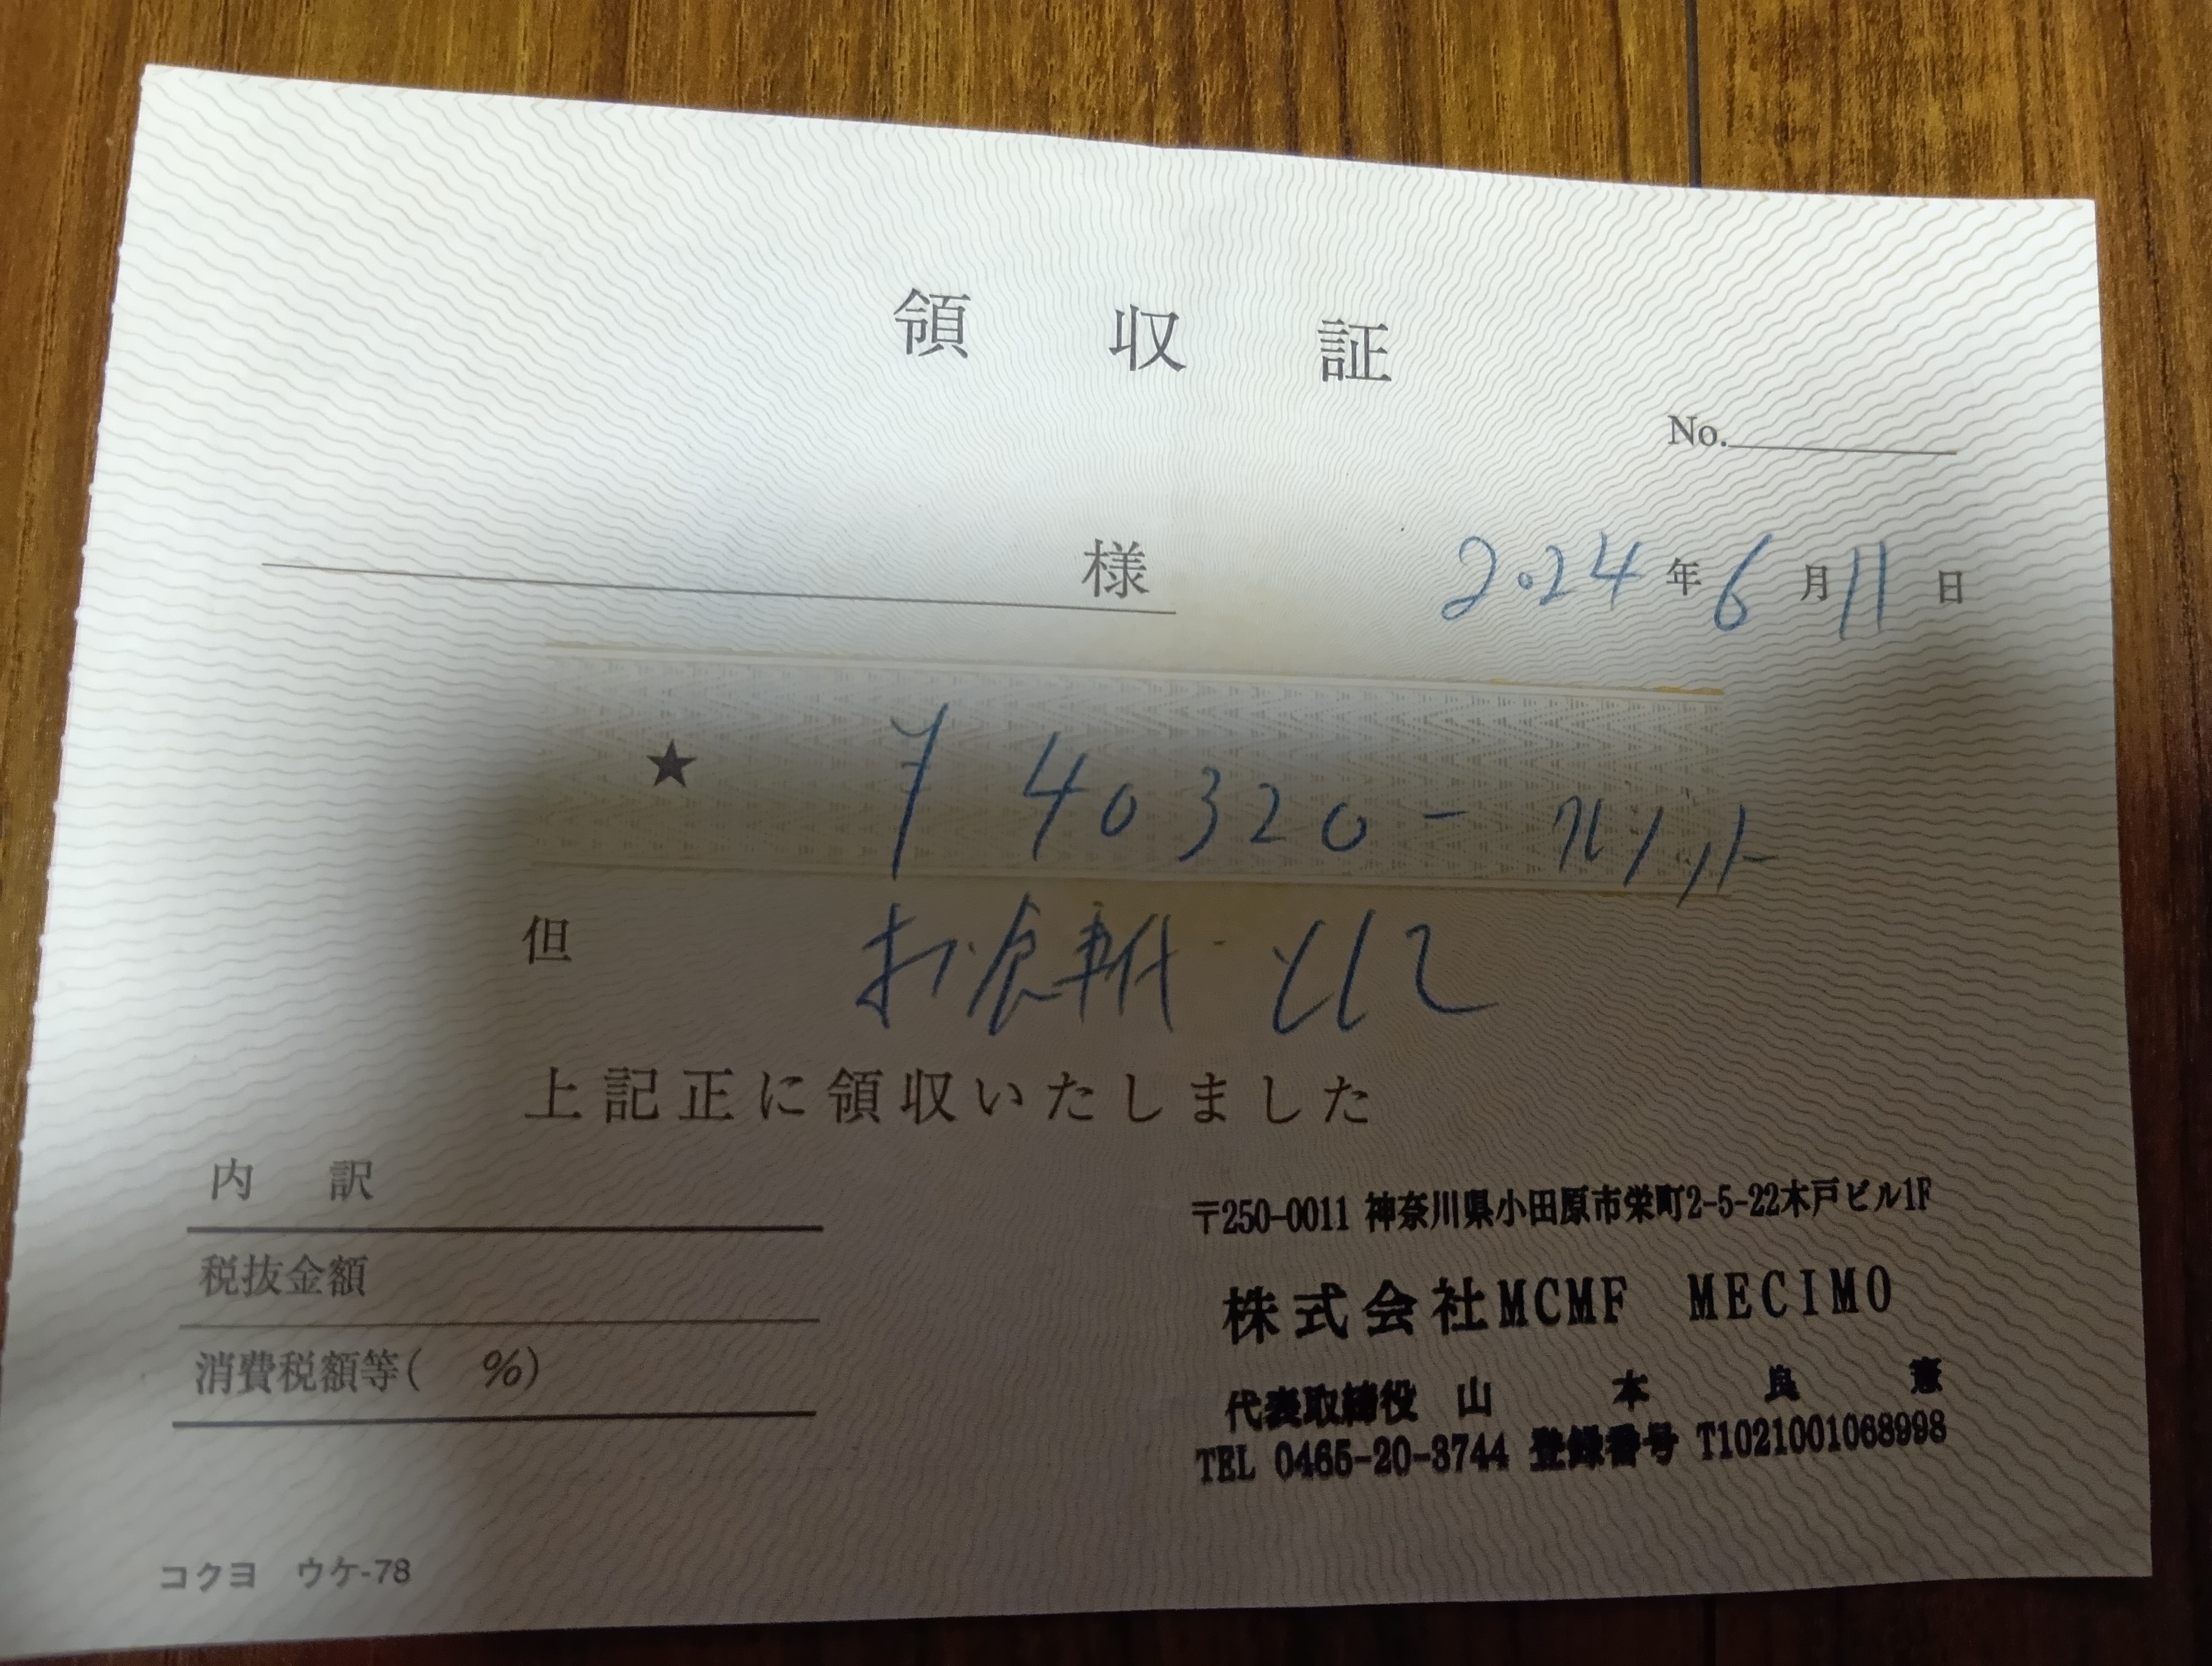 領収証
No.
様 2024年6月11日
★ ¥40320- クレジット
但 お食事代として
上記正に領収いたしました
内訳
税抜金額
消費税額等( %)
〒250-0011 神奈川県小田原市栄町2-5-22木戸ビル1F
株式会社MCMF MECIMO
代表取締役 山本良憲
TEL 0465-20-3744 登録番号 T1021001068998
コクヨ ウケ-78